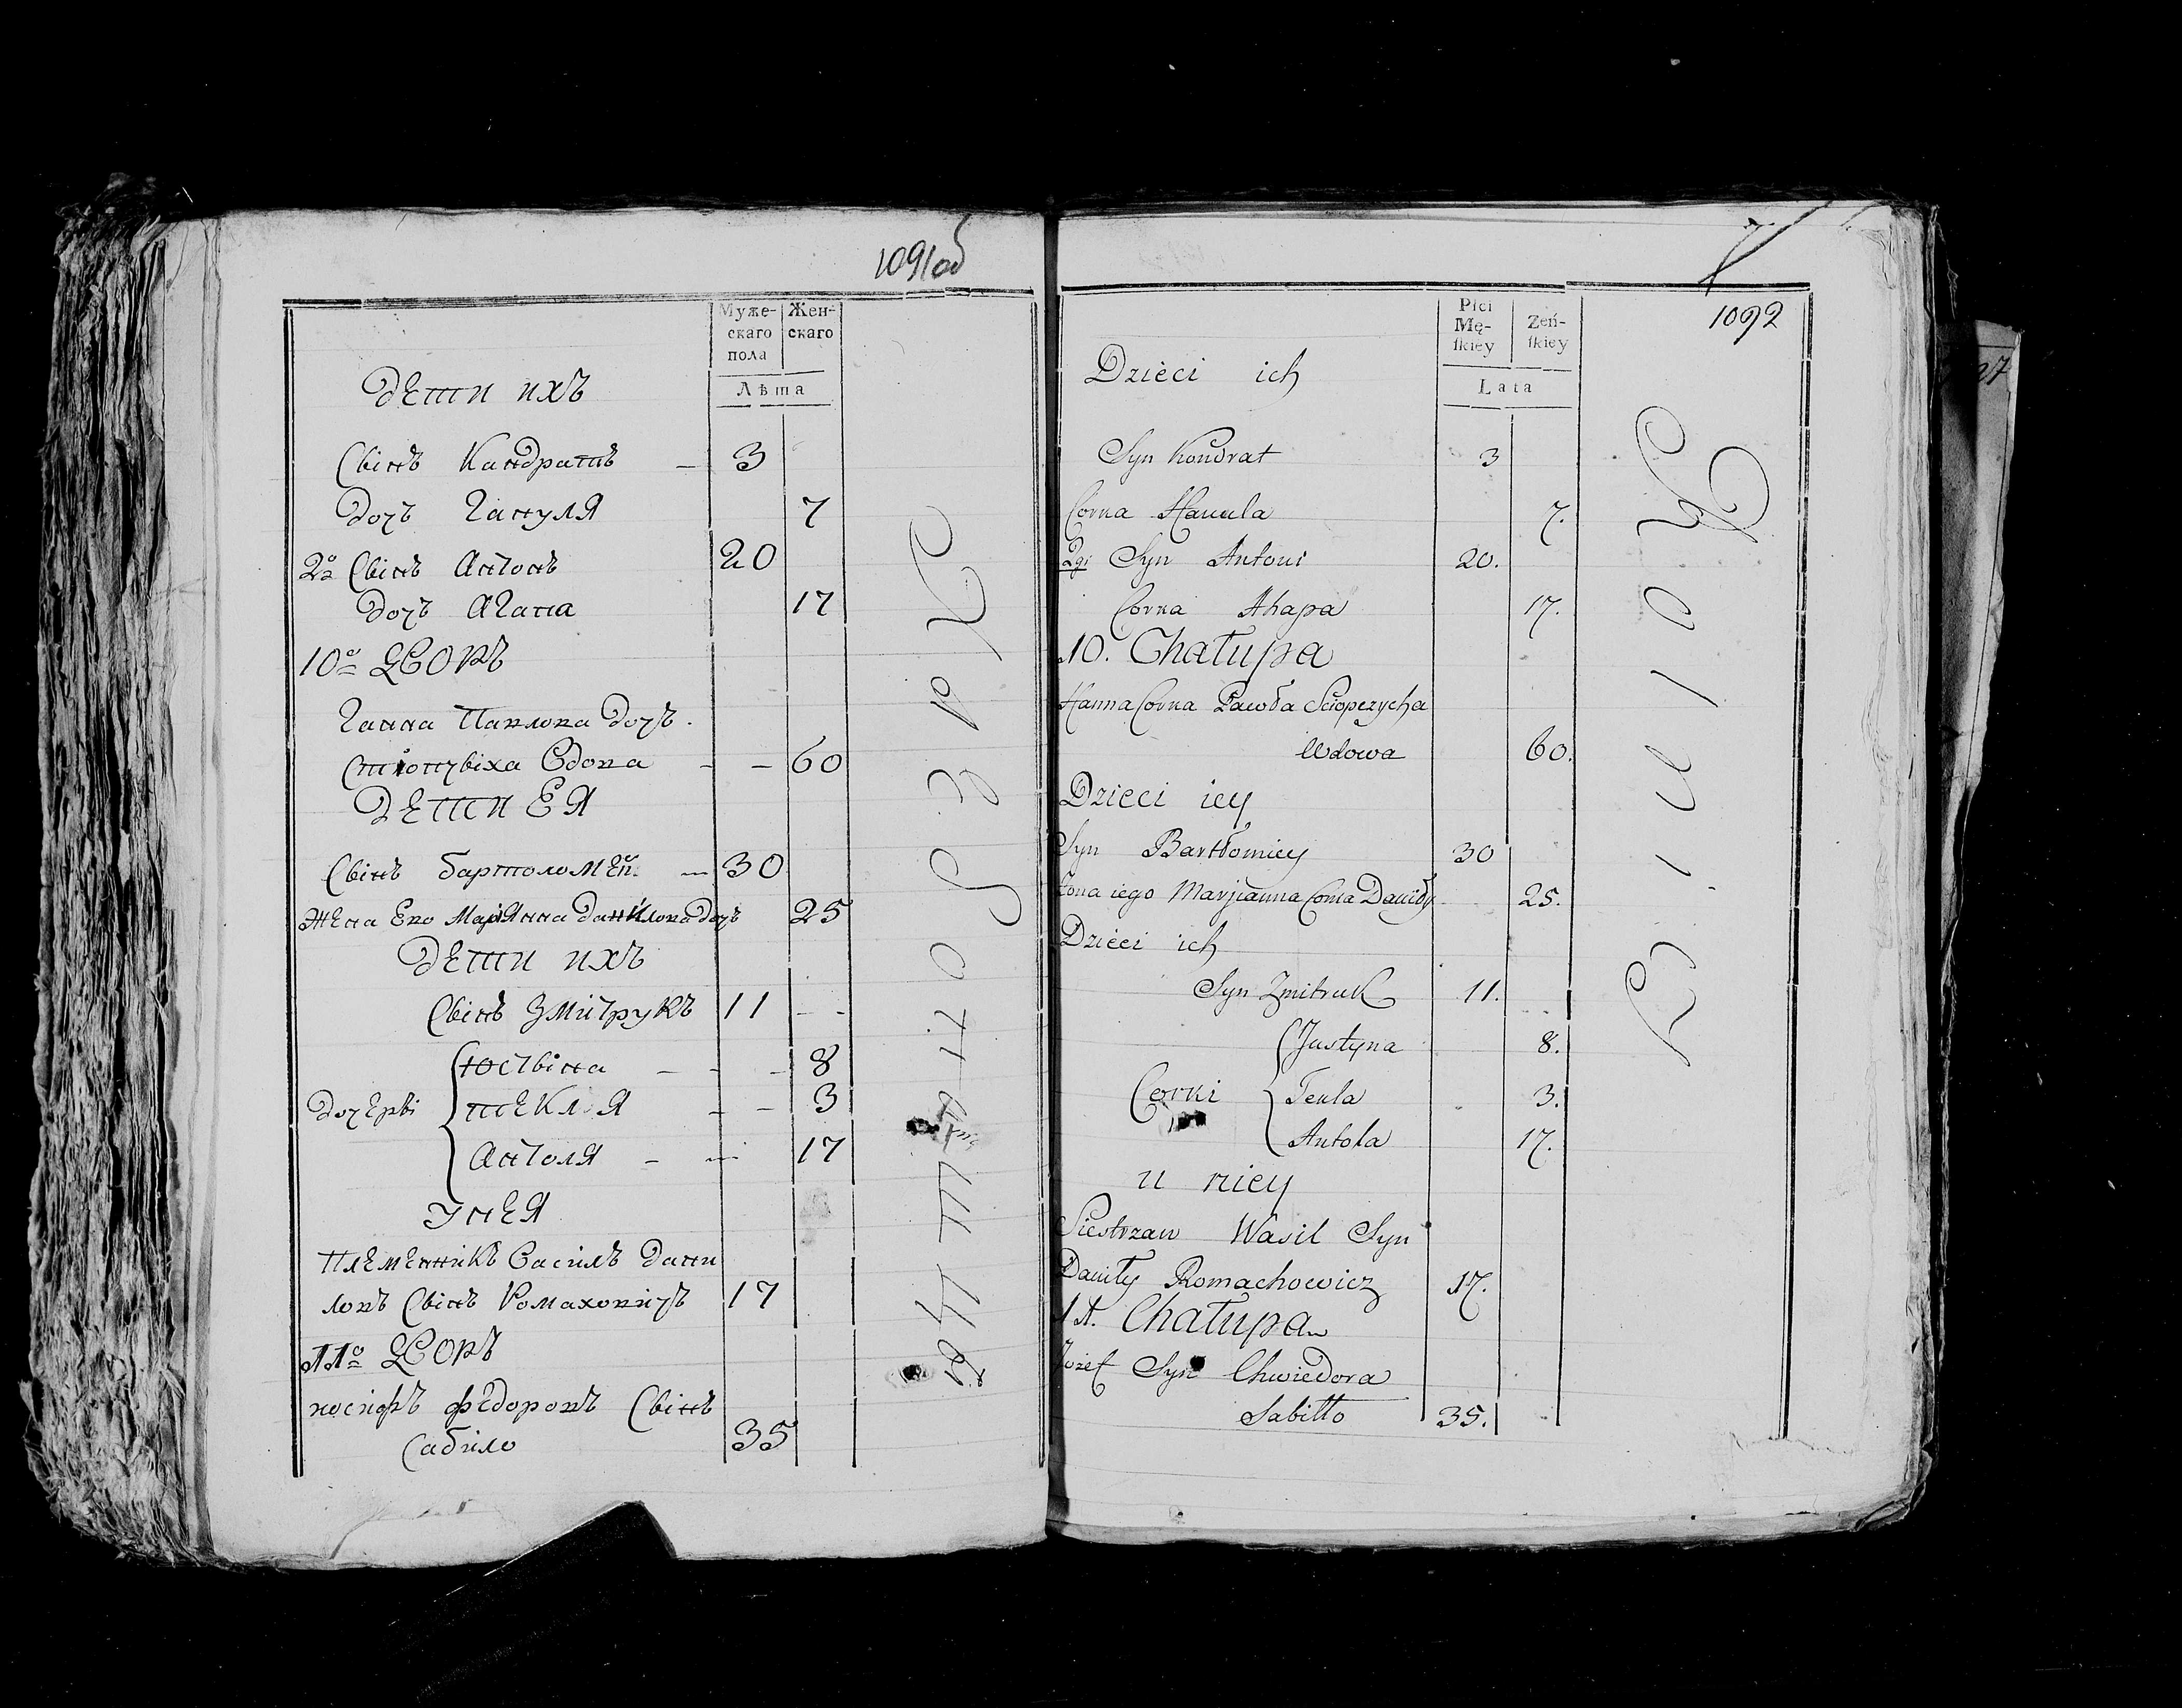 1091об
Муже- Жен-
скаго скаго
пола
Лѣта
Дети ихъ
Свінъ Кандратъ 3
Дочъ Гануля 7
2о Свінъ Антонъ 20
Дочъ Агапа 17
10о Дворъ
Ганна Павлова Дочъ
Стіопчвіха Вдова 60
Дети Ея
Свінъ бартоломей 30
Жена Его Маріянна Данилова Дочъ 25
Дети ихъ
Свінъ Змітрукъ 11
Юствіна 8
Дочерві Текля 3
Антоля 17
У нея
Племенникъ Василъ Дани
ловъ Свінъ Ромаховичъ 17
11о Дворъ
иосифъ федоровъ Свінъ
Сабило 35
1092
Płci
Mę- Zeń-
ſkiey ſkiey
Lata
Dzieci ich
Syn Kondrat 3
Corka Hanula 7.
2gi Syn Antoni 20.
Corka Ahapa 17.
10. Chałupa
Hanna Corka Pawła Sciopczycha
Wdowa 60.
Dzieci iey
Syn Bartłomiey 30
Żona iego Marjianna Corka Daniły 25.
Dzieci ich
Syn Zmitruk 11.
Justyna 8.
Corki Tekla 3.
Antola 17.
u niey
Siestrzan Wasil Syn
Daniły Romachowicz 17.
11. Chałupa
Jozef Syn Chwiedora
Sabiłło 35.